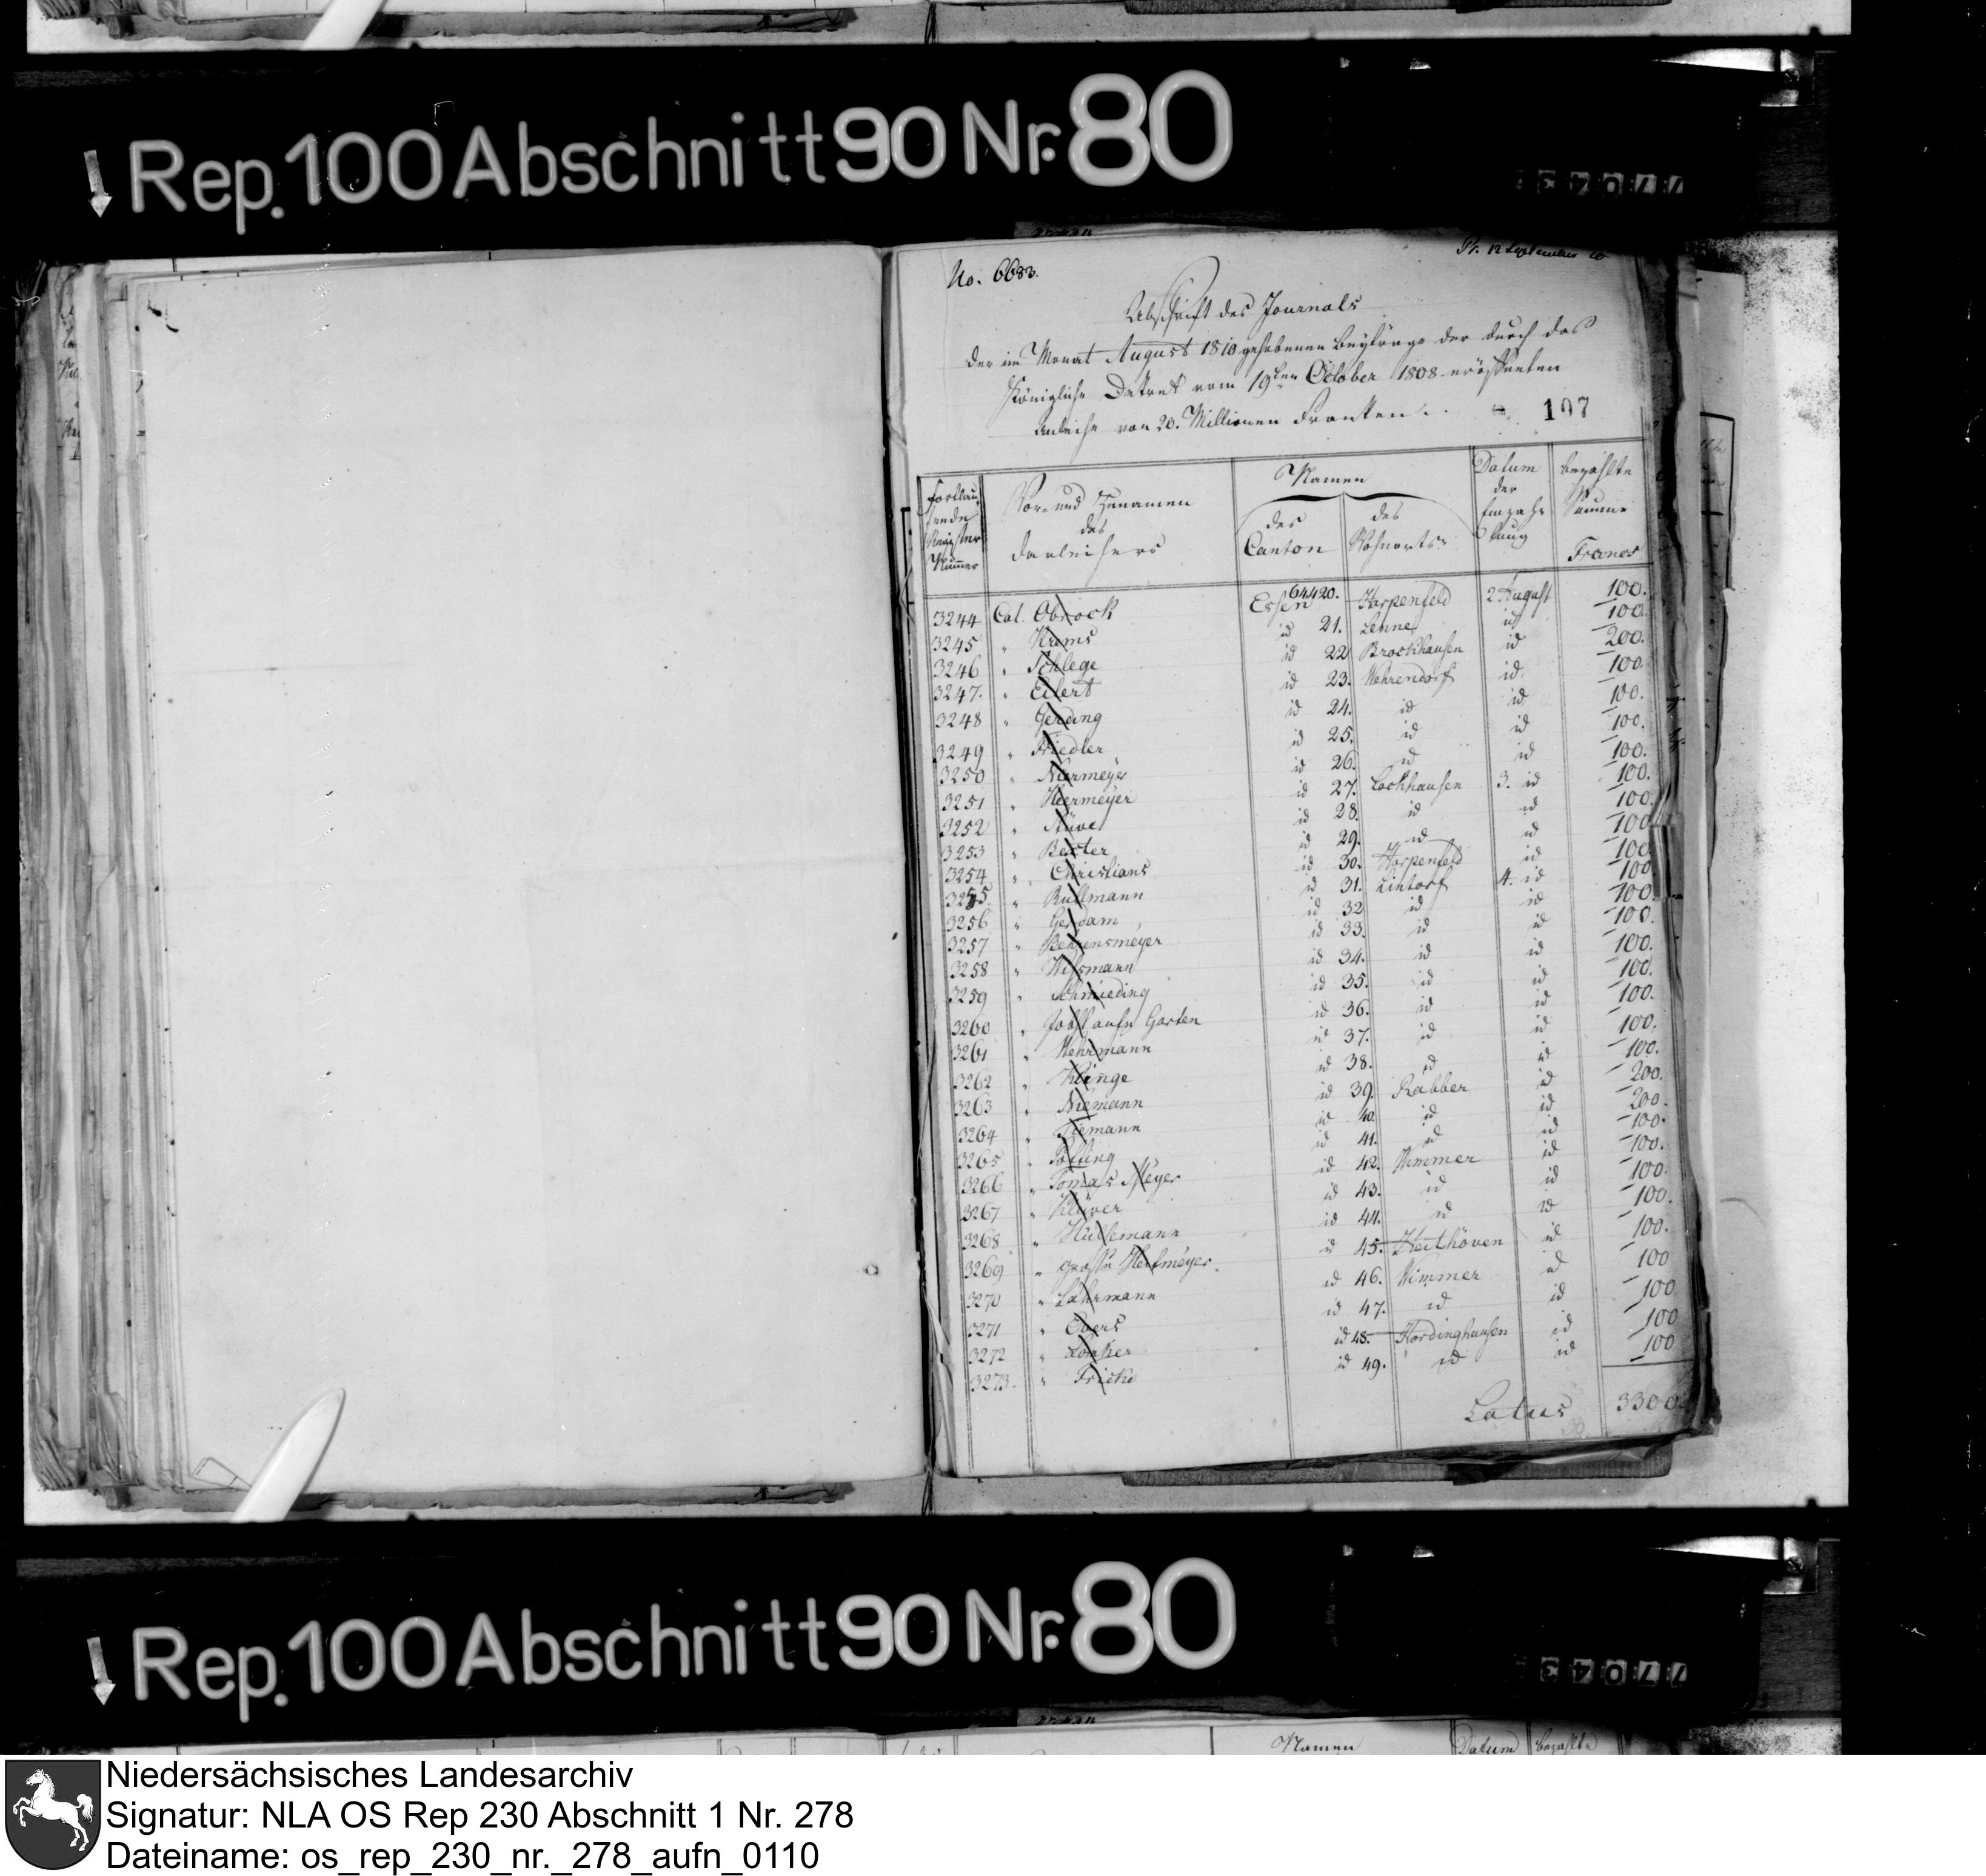 Rep. 100 Abschnitt 90 Nr. 80
No. 6683.
Pr. 12 September
Abschrift des Journals
der im Monat August 1810 gehobenen Beyträge der durch das
Königliche Dekret vom 19ten October 1808 eröffneten
Anleihe von 20. Millionen Franken.
107
Fortlaufende Register Nummer | Vor- und Zunamen des Darleihers | Namen des Canton | des Wohnorts | Datum der Einzahlung | bezahlte Summe Francs
3244 Col. Obrock Essen 64420. Harpenfeld 2 August 100.
3245 " Krems id 21. Lenne id 100
3246 " Schlege id 22 Brockhausen id 200.
3247. " Eilert id 23. Wehrendorf id. 100.
3248 " Gerding id 24. id id 100.
3249 " Friedler id 25. id id 100.
3250 " Niermeyer id 26. id id 100.
3251 " Heermeyer id 27. Lockhausen 3. id 100.
3252 " Stüve id 28. id id 100.
3253 " Bexter id 29. id id 100
3254 " Christians id 30. Harpenfeld id 100
3255. " Rullmann id 31. Lintorf 4. id 100
3256 " Gerdam id 32 id id 100.
3257 " Behrensmeyer id 33. id id 100.
3258 " Wissmann id 34. id id 100.
3259 " Schmieding id 35. id id 100.
3260 " Jobst aufn Garten id 36. id id 100.
3261 " Wehrmann id 37. id id 100.
3262 " Klinge id 38. id id 100.
3263 " Niemann id 39. Rabber id 200.
3264 " Tiemann id 40. id id 200.
3265 " Pölling id 41. id id 100.
3266 " Tomass Meyer id 42. Wimmer id 100.
3267 " Klüver id 43. id id 100.
3268 " Hüllemann id 44. id id 100.
3269 " große Heitmeyer. id 45. Heithöven id 100.
3270 " Lahrmann id 46. Wimmer id 100
3271 " Evers id 47. id id 100
3272 " Lönker id 48. Hördinghausen id 100
3273. " Fricke id 49. id id 100
Latus 3300.
Rep. 100 Abschnitt 90 Nr. 80
Namen Datum bezahlte
Niedersächsisches Landesarchiv
Signatur: NLA OS Rep 230 Abschnitt 1 Nr. 278
Dateiname: os_rep_230_nr._278_aufn_0110